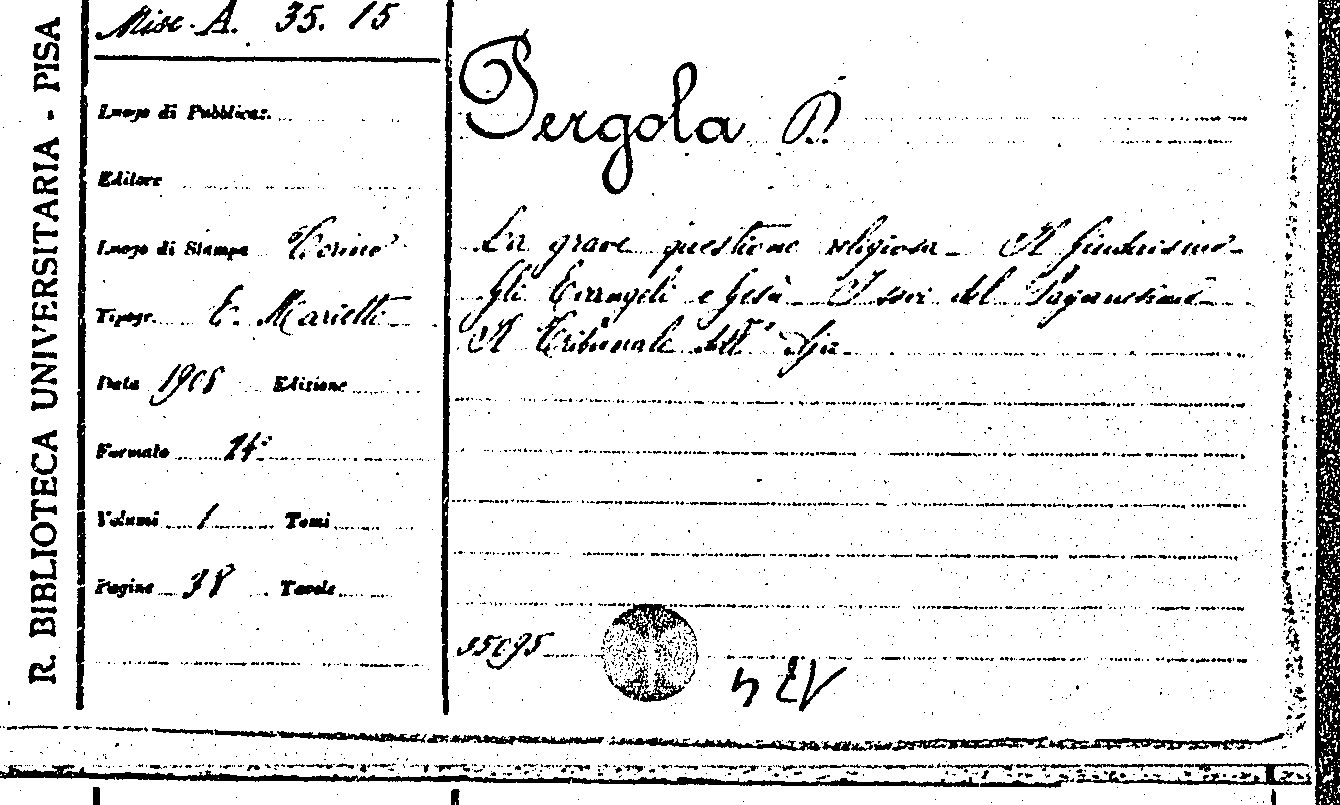 R. BIBLIOTECA UNIVERSITARIA - PISA
Misc. A. 35. 15
Luogo di Pubblicaz.
Editore
Luogo di Stampa Torino
Tipogr. E. Marietti
Data 1908 Edizione
Formato 24°
Volumi 1 Tomi
Pagine 38 Tavole
Pergola P.
La grave questione religiosa - Il Giudaismo -
Gli Evangeli e Gesù - I soci del Paganesimo
Il Tribunale dell'